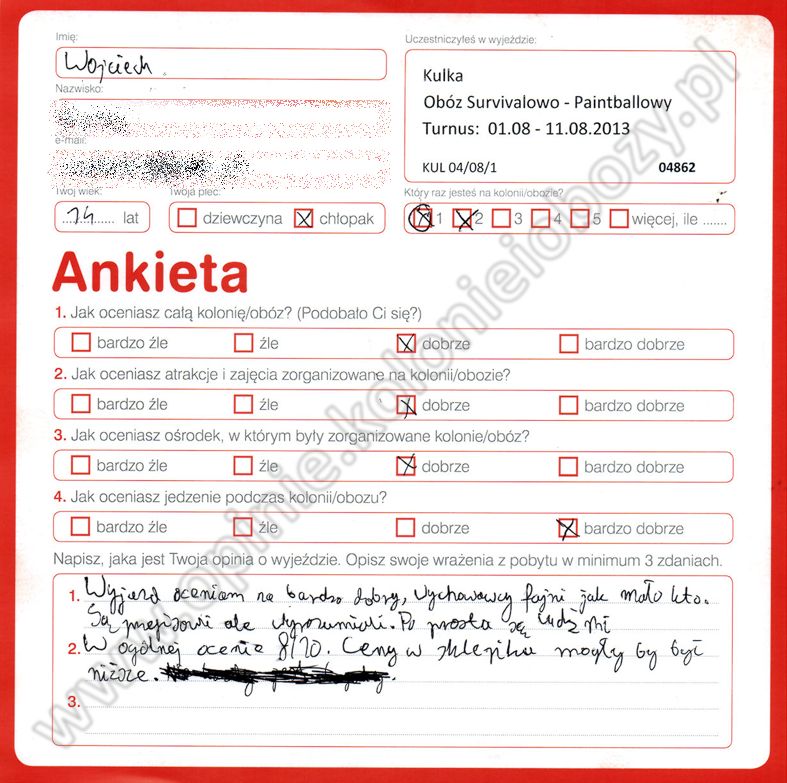 Imię:
Wojciech
Nazwisko:
e-mail:
Twój wiek:
14 lat
Twoja płeć:
dziewczyna chłopak
Uczestniczyłeś w wyjeździe:
Kulka
Obóz Survivalowo - Paintballowy
Turnus: 01.08 - 11.08.2013
KUL 04/08/1 04862
Który raz jesteś na kolonii/obozie?
1 2 3 4 5 więcej, ile .......
Ankieta
1. Jak oceniasz całą kolonię/obóz? (Podobało Ci się?)
bardzo źle źle dobrze bardzo dobrze
2. Jak oceniasz atrakcje i zajęcia zorganizowane na kolonii/obozie?
bardzo źle źle dobrze bardzo dobrze
3. Jak oceniasz ośrodek, w którym były zorganizowane kolonie/obóz?
bardzo źle źle dobrze bardzo dobrze
4. Jak oceniasz jedzenie podczas kolonii/obozu?
bardzo źle źle dobrze bardzo dobrze
Napisz, jaka jest Twoja opinia o wyjeździe. Opisz swoje wrażenia z pobytu w minimum 3 zdaniach.
1. Wyjazd oceniam na bardzo dobry, wychowawcy fajni jak mało kto.
Są ale wyrozumiali. Po prostu są
2. W ogólnej ocenie 8/10. Ceny w sklepiku mogły by być
niższe.
3.
www.opinie.kolonieiobozy.pl